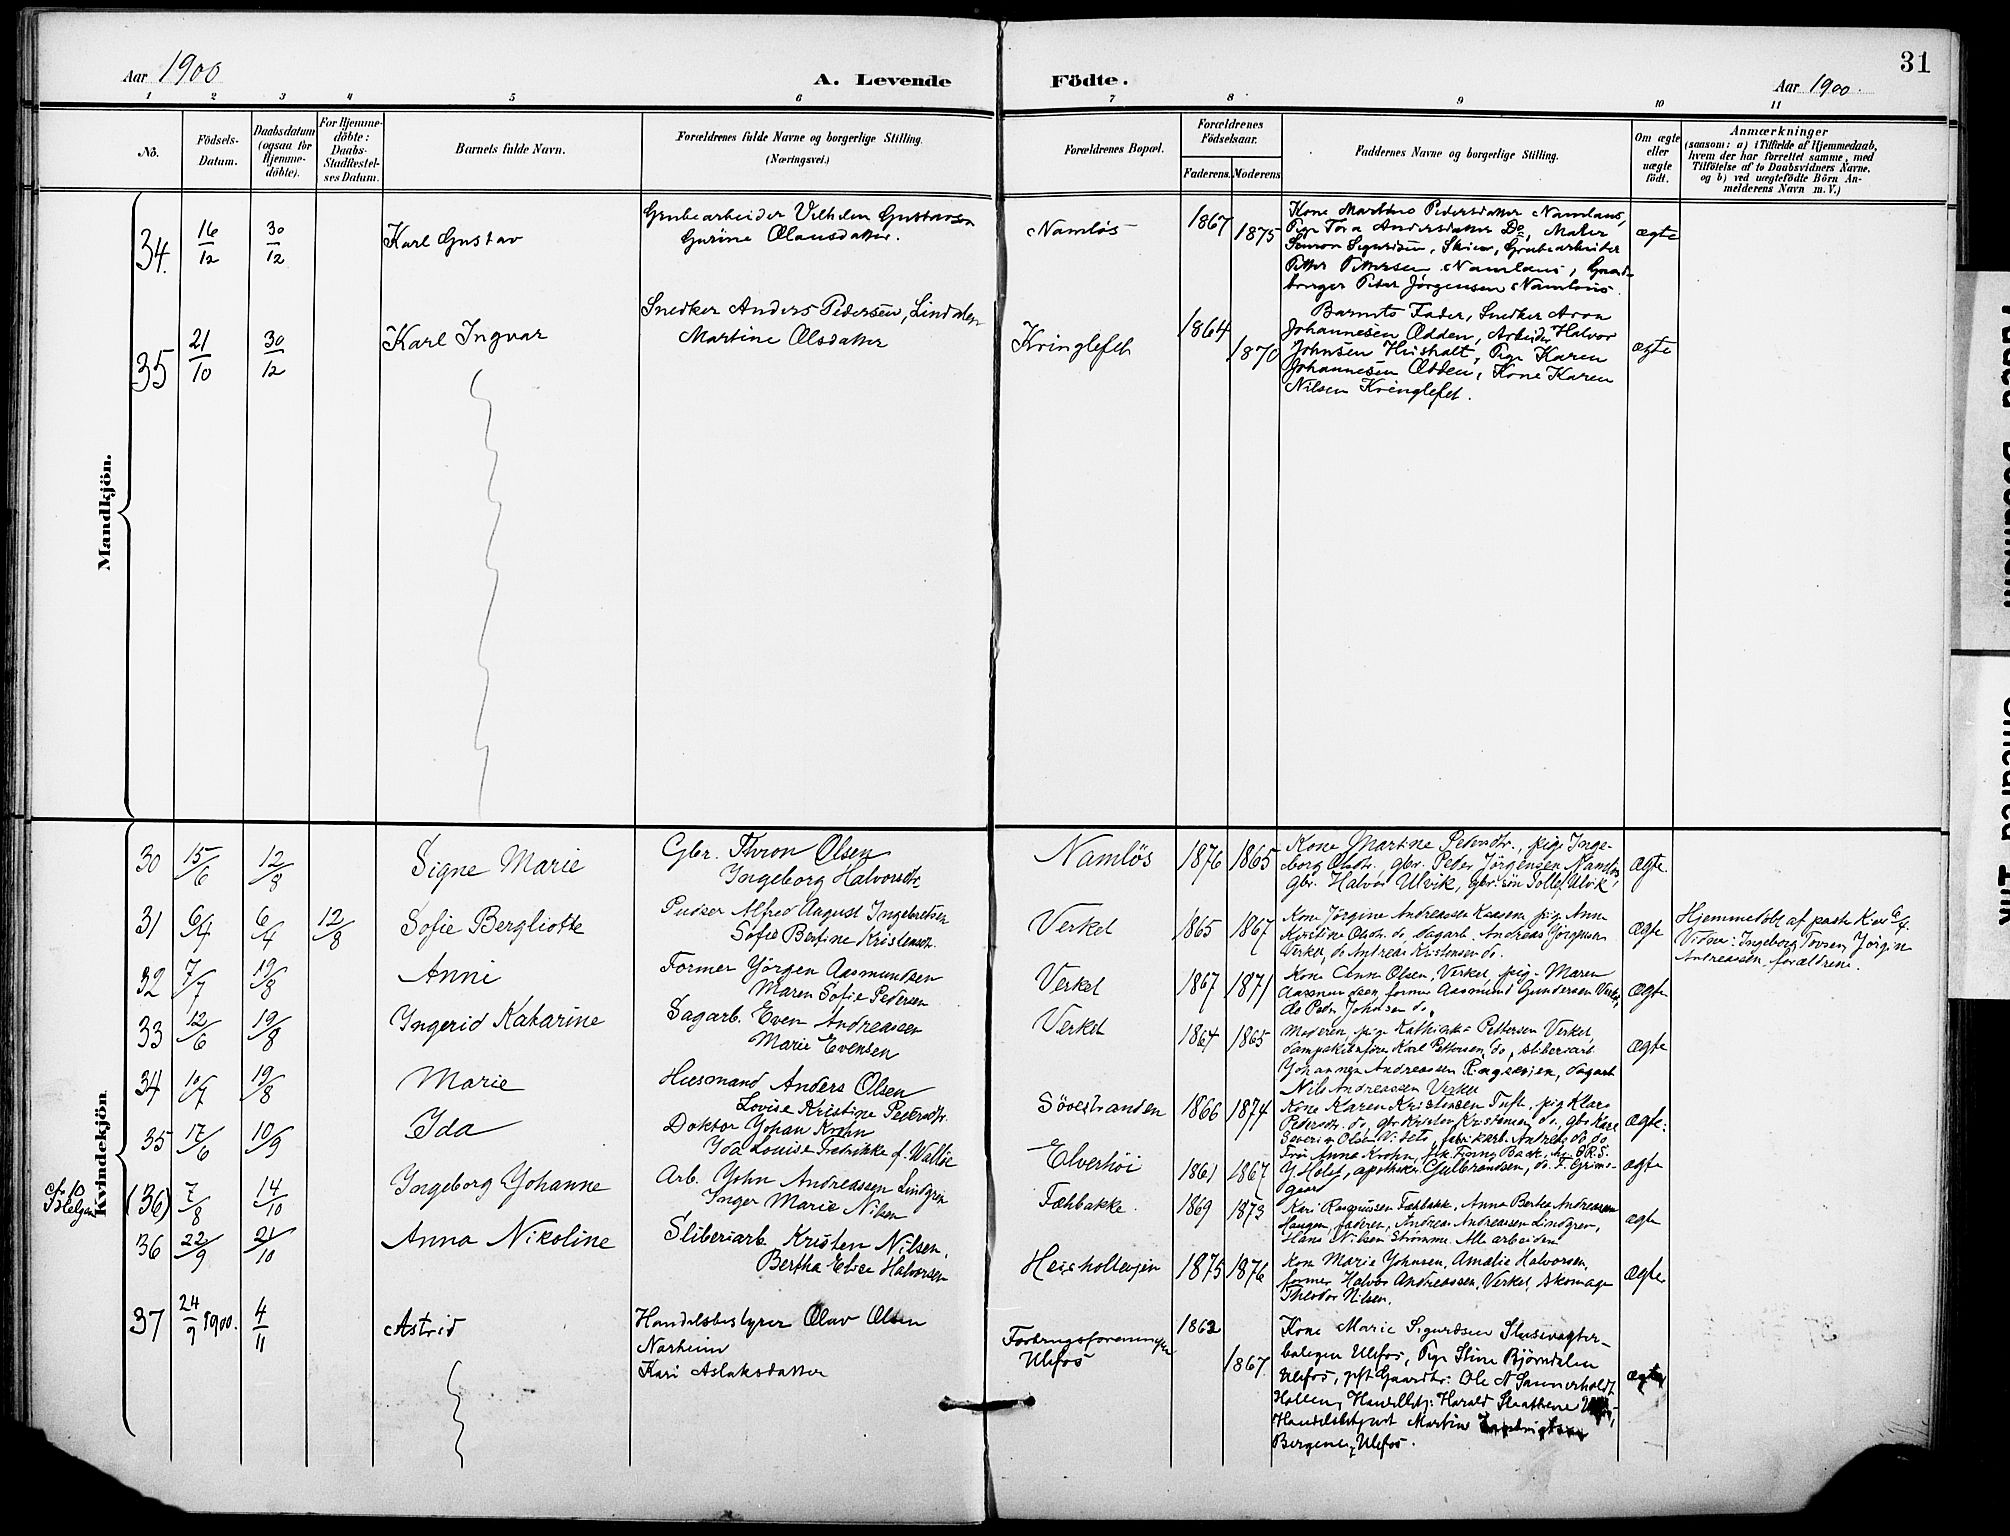 31
Aar 1900
A. Levende
Födte.
Aar 1900.
1 2 3 4 5 6 7 8 9 10 11
Nô.
Födsels-
Datum.
Daabsdatum
(ogsaa for
Hjemme-
döbte).
For Hjemme-
döbte:
Daabs-
Stadfæstel-
ses Datum.
Barnets fulde Navn.
Forældrenes fulde Navne og borgerlige Stilling.
(Næringsvei.)
Forældrenes Bopæl.
Forældrenes
Födselsaar.
Faderens. Moderens
Faddernes Navne og borgerlige Stilling.
Om ægte
eller
uægte
födt.
Anmærkninger
(saasom: a) i Tilfælde af Hjemmedaab,
hvem der har forrettet samme, med
Tilföielse af to Daabsvidners Navne.
og b) ved uægtefödte Börn An-
melderens Navn m. V.)
Mandkjön.
34.
16/12
30/12
Karl Gustav
Grubearbeider Vilhelm Gustavsen
Gurine Olausdatter.
Namløs
1867
1875
Kone Martine Pedersdatter Namløus,
Pige Tora Andersdatter Do, Maler
Simon Sigurdsen, Skien, Grubearbeider
Petter Pettersen Namløus, Gaard-
bruger Peder Jørgensen Namløus.
ægte
35
21/10
30/12
Karl Ingvar
Snedker Anders Pedersen, Linddalen
Martine Olsdatter
Kringlefet
1864
1870
Barnets Fader, Snedker Aron
Johannesen Odden, Arbeider Halvor
Johnsen Heisholt, Pige Karen
Johannesen Odden, Kone Karen
Nilsen Kringlefet.
ægte
Kvindekjön
30
15/6
12/8
Signe Marie
Gbr. Thron Olsen
Ingeborg Halvorsdtr
Namløs
1876 1865
Kone Martine Pedersdtr., pige Inge-
borg Olsdtr, gbr. Peder Jörgensen Namløs,
gbr. Halvor Ulvik, gbr.sön Tollef Ulvik
ægte.
31
6/4
6/4
12/8
Sofie Bergliotte
Pudser Alfred August Ingebretsen
Sofie Bertine Kristensdtr.
Verket
1865 1867
Kone Jørgine Andreassen Kaasen, pig. Anne
Kirstine Olsdtr. do, sagarb. Andreas Jörgensen
Verket, do Andreas Kristensen do.
ægte
Hjemmedöbt af paste Kiær 6/4.
Vidner: Ingeborg Tovsen, Jörgin
Andreassen, forældrene.
32
7/7
19/8
Anni
Former Jörgen Aasmundsen
Maren Sofie Pedersen
Verket
1867 1871
Kone Anne Olsen, Verket, pig. Maren
Aasmundsen, former Aasmund Gundersen Verket,
do Peder Johnsen do.
ægte
33
12/6
19/8
Ingerid Katarine
Sagarb. Even Andreassen
Marie Evensen
Verket
1864 1865
Moderen, pige Kathinka Pettersen Verket,
dampskibsfører Karl Pettersen do, sliberiarb.
Johannes Andreassen Ringsevjen, sagarb
Nils Andreassen Verket
ægte
34
10/7
19/8
Marie
Husmand Anders Olsen
Lovise Kristine Pedersdtr.
Søvestranden
1866 1874
Kone Karen Kristensen Tuft, pig Klara
Pedersdtr. do, gbr Kristen Kristensen do, gbr Kare
Severin Olsen Videto, fabrikarb. Andreas do do
ægte.
35
17/6
10/9
Ida
Doktor Johan Krohn
Ida Louise Fredrikke f. Walløe
Elverhöi
1861 1867
Fru Anna Krohn, frk. Fanny Back, hr. O.R.S.
J. Holst, apotheker Gulbrandsen, do. F. Grims-
gaard
ægte
cf. 10
Helgen
(36)
7/8
14/10
Ingeborg Johanne
Arb. John Andreassen Lindgren
Inger Marie Nilsen
Fæhbakke.
1869 1873
Kari Rasmussen Fæhbakke, Anna Berthe Andreassen
Haugen, faderen, Andreas Andreassen Lindgren,
Hans Nilsen Strömme. Alle arbeidere
ægte
36
22/9
21/10
Anna Nikoline
Sliberiarb. Kristen Nilsen.
Bertha Elise Halvorsen
Heisholtevjen
1875 1876
Kone Marie Johnsen, Amalie Halvorsen,
former Halvor Andreassen, Verket, skomager
Theodor Nilsen.
ægte
37
24/9 1900.
4/11
Astrid
Handelsbestyrer Olav Olsen
Norheim
Kari Aslaksdatter
Forbrugsforeningen
Ulefos
1862
1867
Kone Marie Sigurdsen Slusevogter-
boligen Ulefos, Pige Stine Bjørndalen
Ulefos, gift Gaardbr: Ole N Sannerholdt
Hollen, Handelsbetj: Harald Skaathene Ulefos,
Handelsbetjent Martin
Bergene, Ulefos.
ægte